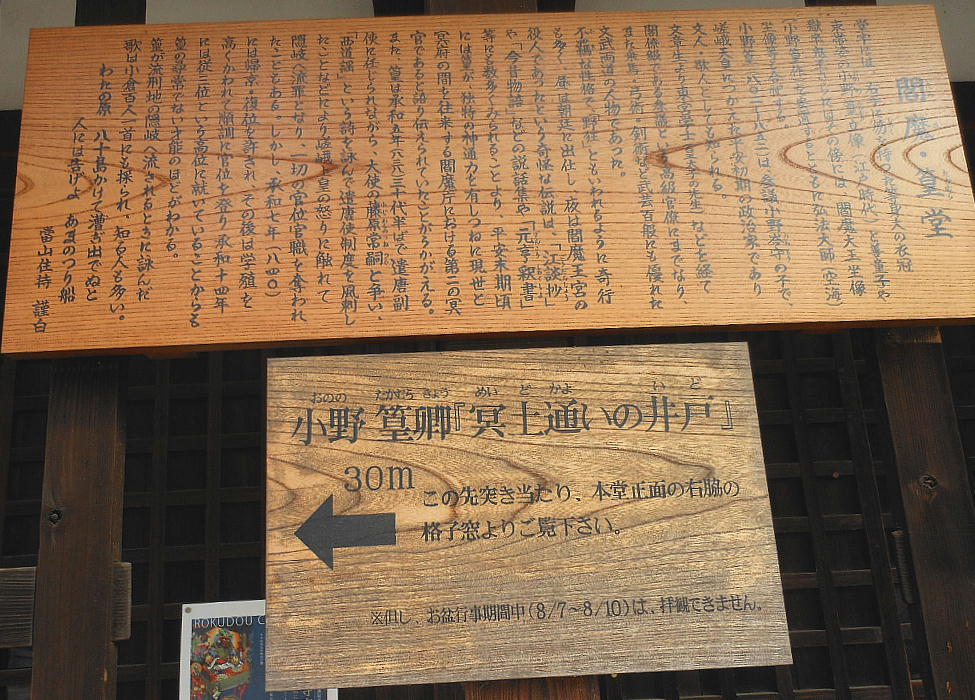 閻魔・篁堂
堂中には、右手に笏を持つ等身大の衣冠
束帯姿の小野篁立像（江戸時代）と善童子や
獄卒鬼立像ならびにその傍には、閻魔大王坐像
（小野篁作）を安置するとともに弘法大師（空海）
坐像を合祀する。
小野篁（八〇二〜八五二）は参議小野岑守の子で、
嵯峨天皇につかえた平安初期の政治家であり
文人・歌人としても知られる。
文章生より東宮学士（皇太子の先生）などを経て
閣僚級である参議という高級官僚にまでなり、
また乗馬、弓術、剣術など武芸百般にも優れた
文武両道の人物であった。
不羈な性格で、「野狂」ともいわれるように奇行
も多く、昼は朝廷に出仕し、夜は閻魔王宮の
役人であったという奇怪な伝説は、「江談抄」
や「今昔物語」などの説話集や「元亨釈書」
等にも数多くみられることより、平安末期頃
には篁が、独特の神通力を有しつねに現世と
冥府の間を往来する閻魔庁における第二の冥
官であると語り伝えられていたことがうかがえる。
また、篁は承和五年（八三八）三十代半ばで遣唐副
使に任じられながら、大使の藤原常嗣と争い、
「西道謡」という詩を詠んで遣唐使制度を風刺し
たことなどにより嵯峨上皇の怒りに触れて
隠岐へ流罪となり、一切の官位官職を奪われ
たこともある。しかし、承和七年（八四〇）
には帰京、復位を許され、その後は学殖を
高くかわれて順調に官位を登り承和十四年
には従三位という高位に就いていることからも
篁の尋常でない才能のほどがわかる。
篁が流刑地の隠岐へ流されるときに詠んだ
歌は小倉百人一首にも採られ、知る人も多い。
わたの原　八十島かけて漕き出でぬと
人には告げよ　あまのつり船
當山住持　謹白
小野篁卿『冥土通いの井戸』
おのの たかむら きょう めい ど かよ い ど
30m
この先突き当たり、本堂正面の右脇の
格子窓よりご覧下さい。
※但し、お盆行事期間中（8/7〜8/10）は、拝観できません。
ROKUDOU